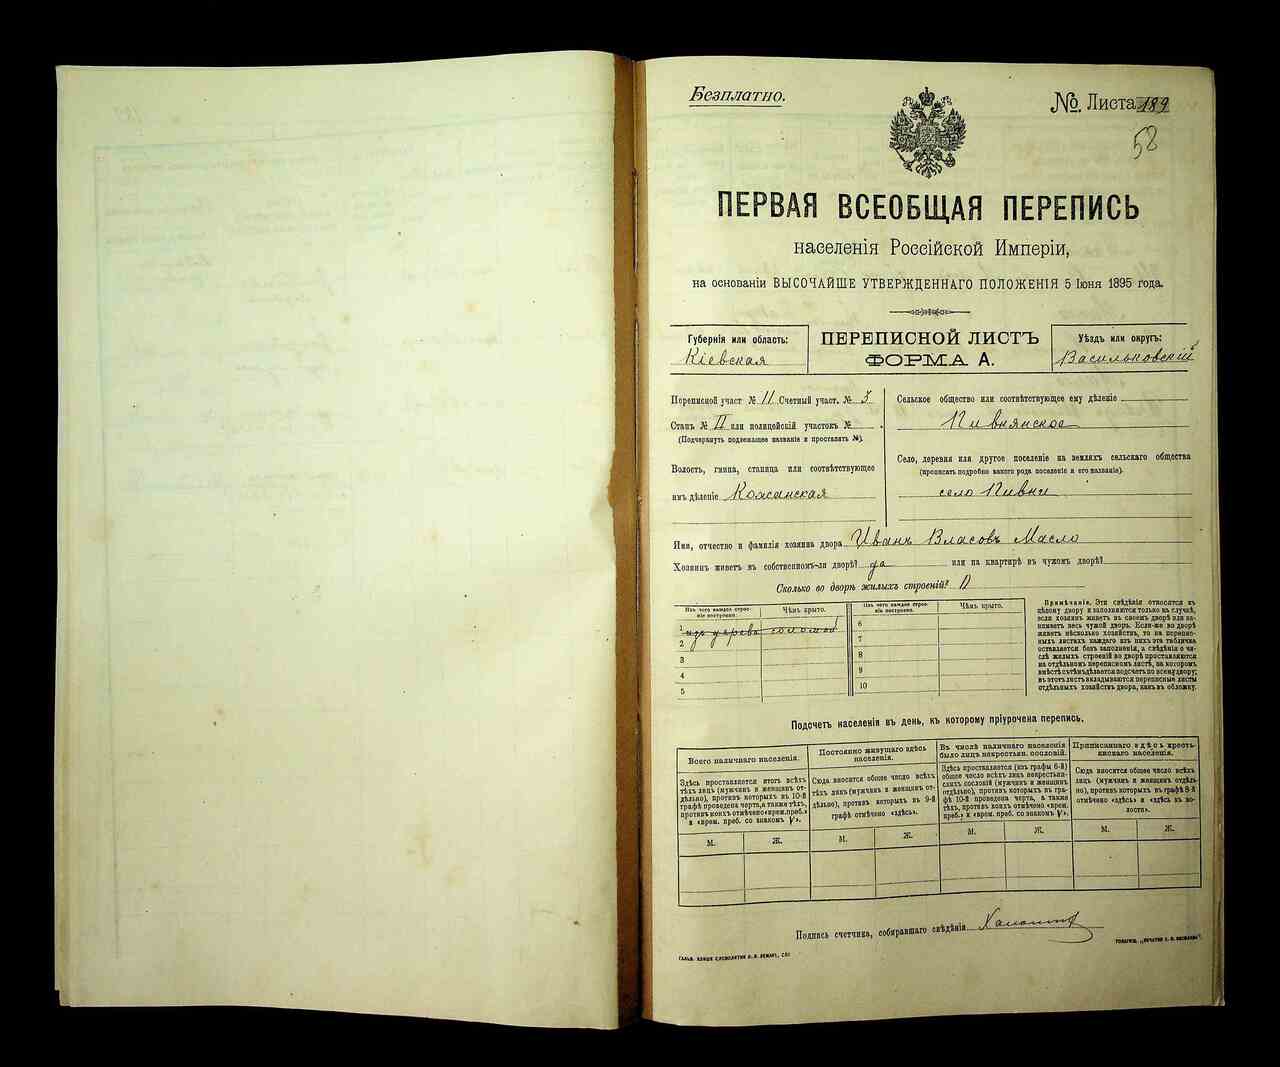 Безплатно.
№ Листа 189
52
ПЕРВАЯ ВСЕОБЩАЯ ПЕРЕПИСЬ
населенія Россійской Имперіи,
на основаніи ВЫСОЧАЙШЕ УТВЕРЖДЕННАГО ПОЛОЖЕНІЯ 5 Іюня 1895 года.
Губернія или область:
Кіевская
ПЕРЕПИСНОЙ ЛИСТЪ
ФОРМА А.
Уѣздъ или округъ:
Васильковскій
Переписной участ № 11 Счетный участ. № 3
Станъ № II или полицейскій участокъ №
(Подчеркнуть подлежащее названіе и проставить №).
Волость, гмина, станица или соотвѣтствующее
имъ дѣленіе Кожанская
Сельское общество или соотвѣтствующее ему дѣленіе
Пивнянское
Село, деревня или другое поселеніе на земляхъ сельскаго общества
(прописать подробно какого рода поселеніе и его названіе).
село Пивни
Имя, отчество и фамилія хозяина двора Иванъ Власовъ Масло
Хозяинъ живетъ въ собственномъ-ли дворѣ? да или на квартирѣ въ чужомъ дворѣ?
Сколько во дворѣ жилыхъ строеній?
Изъ чего каждое строе-
ніе построено.
Чѣмъ крыто.
1
изъ дерева соломой
2
3
4
5
Изъ чего каждое строе-
ніе построено.
Чѣмъ крыто.
6
7
8
9
10
Примѣчаніе. Эти свѣдѣнія относятся къ
цѣлому двору и заполняются только въ случаѣ,
если хозяинъ живетъ въ своемъ дворѣ или за-
нимаетъ весь чужой дворъ. Если-же во дворѣ
живетъ нѣсколько хозяйствъ, то на перепис-
ныхъ листахъ каждаго изъ нихъ эта табличка
оставляется безъ заполненія, а свѣдѣнія о чи-
слѣ жилыхъ строеній во дворѣ проставляются
на отдѣльномъ переписномъ листѣ, на которомъ
вмѣстѣ съ тѣмъ дѣлается подсчетъ по всему двору;
въ этотъ листъ вкладываются переписные листы
отдѣльныхъ хозяйствъ двора, какъ въ обложку.
Подсчетъ населенія въ день, къ которому пріурочена перепись.
Всего наличнаго населенія.
Здѣсь проставляется итогъ всѣхъ
тѣхъ лицъ (мужчинъ и женщинъ от-
дѣльно), противъ которыхъ въ 10-й
графѣ проведена черта, а также тѣхъ,
противъ коихъ отмѣчено «врем. преб.»
и «врем. преб. со знакомъ V».
М. Ж.
Постоянно живущаго здѣсь
населенія.
Сюда вносится общее число всѣхъ
тѣхъ лицъ (мужчинъ и женщинъ от-
дѣльно), противъ которыхъ въ 9-й
графѣ отмѣчено «здѣсь».
М. Ж.
Въ числѣ наличнаго населенія
было лицъ некрестьян. сословій.
Здѣсь проставляется (изъ графы 6-й)
общее число всѣхъ лицъ некрестьян-
скихъ сословій (мужчинъ и женщинъ
отдѣльно), противъ которыхъ въ гра-
фѣ 10-й проведена черта, а также
тѣхъ, противъ коихъ отмѣчено «врем.
преб.» и «врем. преб. со знакомъ V».
М. Ж.
Приписаннаго здѣсь кресть-
янскаго населенія.
Сюда вносится общее число всѣхъ
лицъ (мужчинъ и женщинъ отдѣль-
но), противъ которыхъ въ графѣ 8-й
отмѣчено «здѣсь» и «здѣсь въ во-
лости».
М. Ж.
Подпись счетчика, собиравшаго свѣдѣнія